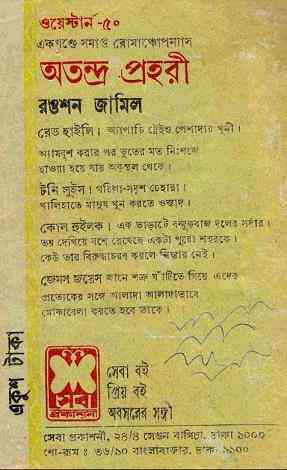 ওয়েস্টার্ন -৫০
একখণ্ডে সমাপ্ত রোমাঞ্চোপন্যাস
অতন্দ্র প্রহরী
রওশন জামিল
রেড হাইলি। অ্যাপাচি ট্রেইণ্ড পেশাদার খুনী।
অ্যামবুশ করার পর ভূতের মত নিঃশব্দে
হাওয়া হয়ে যায় অকুস্থল থেকে।
টনি লুইস। গরিলা-সদৃশ চেহারা।
খালিহাতে মানুষ খুন করতে ওস্তাদ।
কোল হুইলক। এক ভাড়াটে বন্দুকবাজ দলের সর্দার।
ভয় দেখিয়ে বশে রেখেছে একটা পুরো শহরকে।
কেউ তার বিরুদ্ধাচরণ করলে নিস্তার নেই।
জেমস জানে শত্রু ঘাঁটিতে গিয়ে এদের
প্রত্যেকের সঙ্গে আলাদা আলাদাভাবে
মোকাবেলা করতে হবে তাকে।
একুশ টাকা
সেবা
প্রকাশনী
সেবা বই
প্রিয় বই
অবসরের সঙ্গী
সেবা প্রকাশনী, ২৪/৪ সেগুন বাগিচা, ঢাকা ১০০০
শো-রুম: ৩৬/১০ বাংলাবাজার, ঢাকা ১১০০